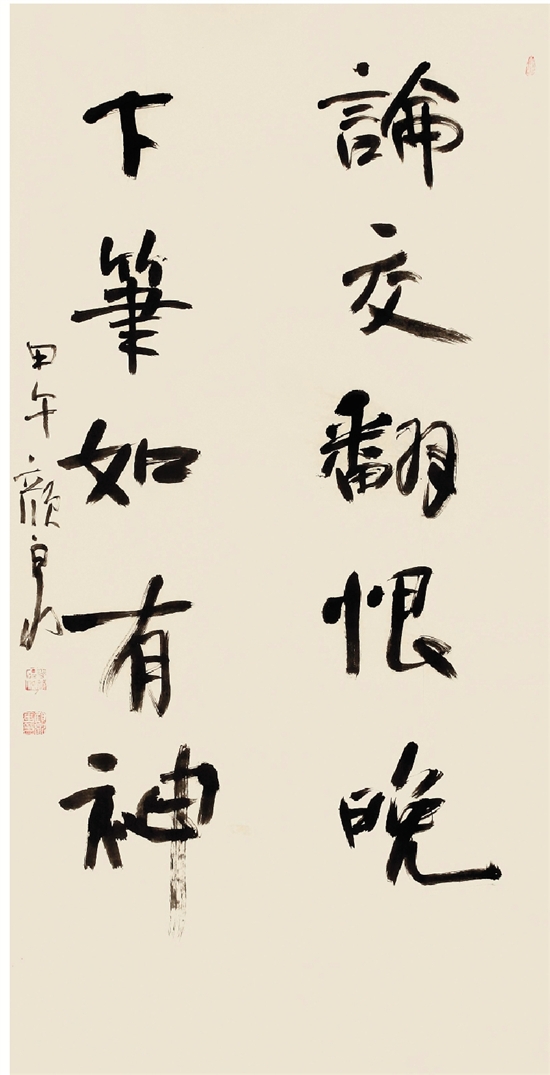 論交翻恨晚
下筆如有神
甲午顏